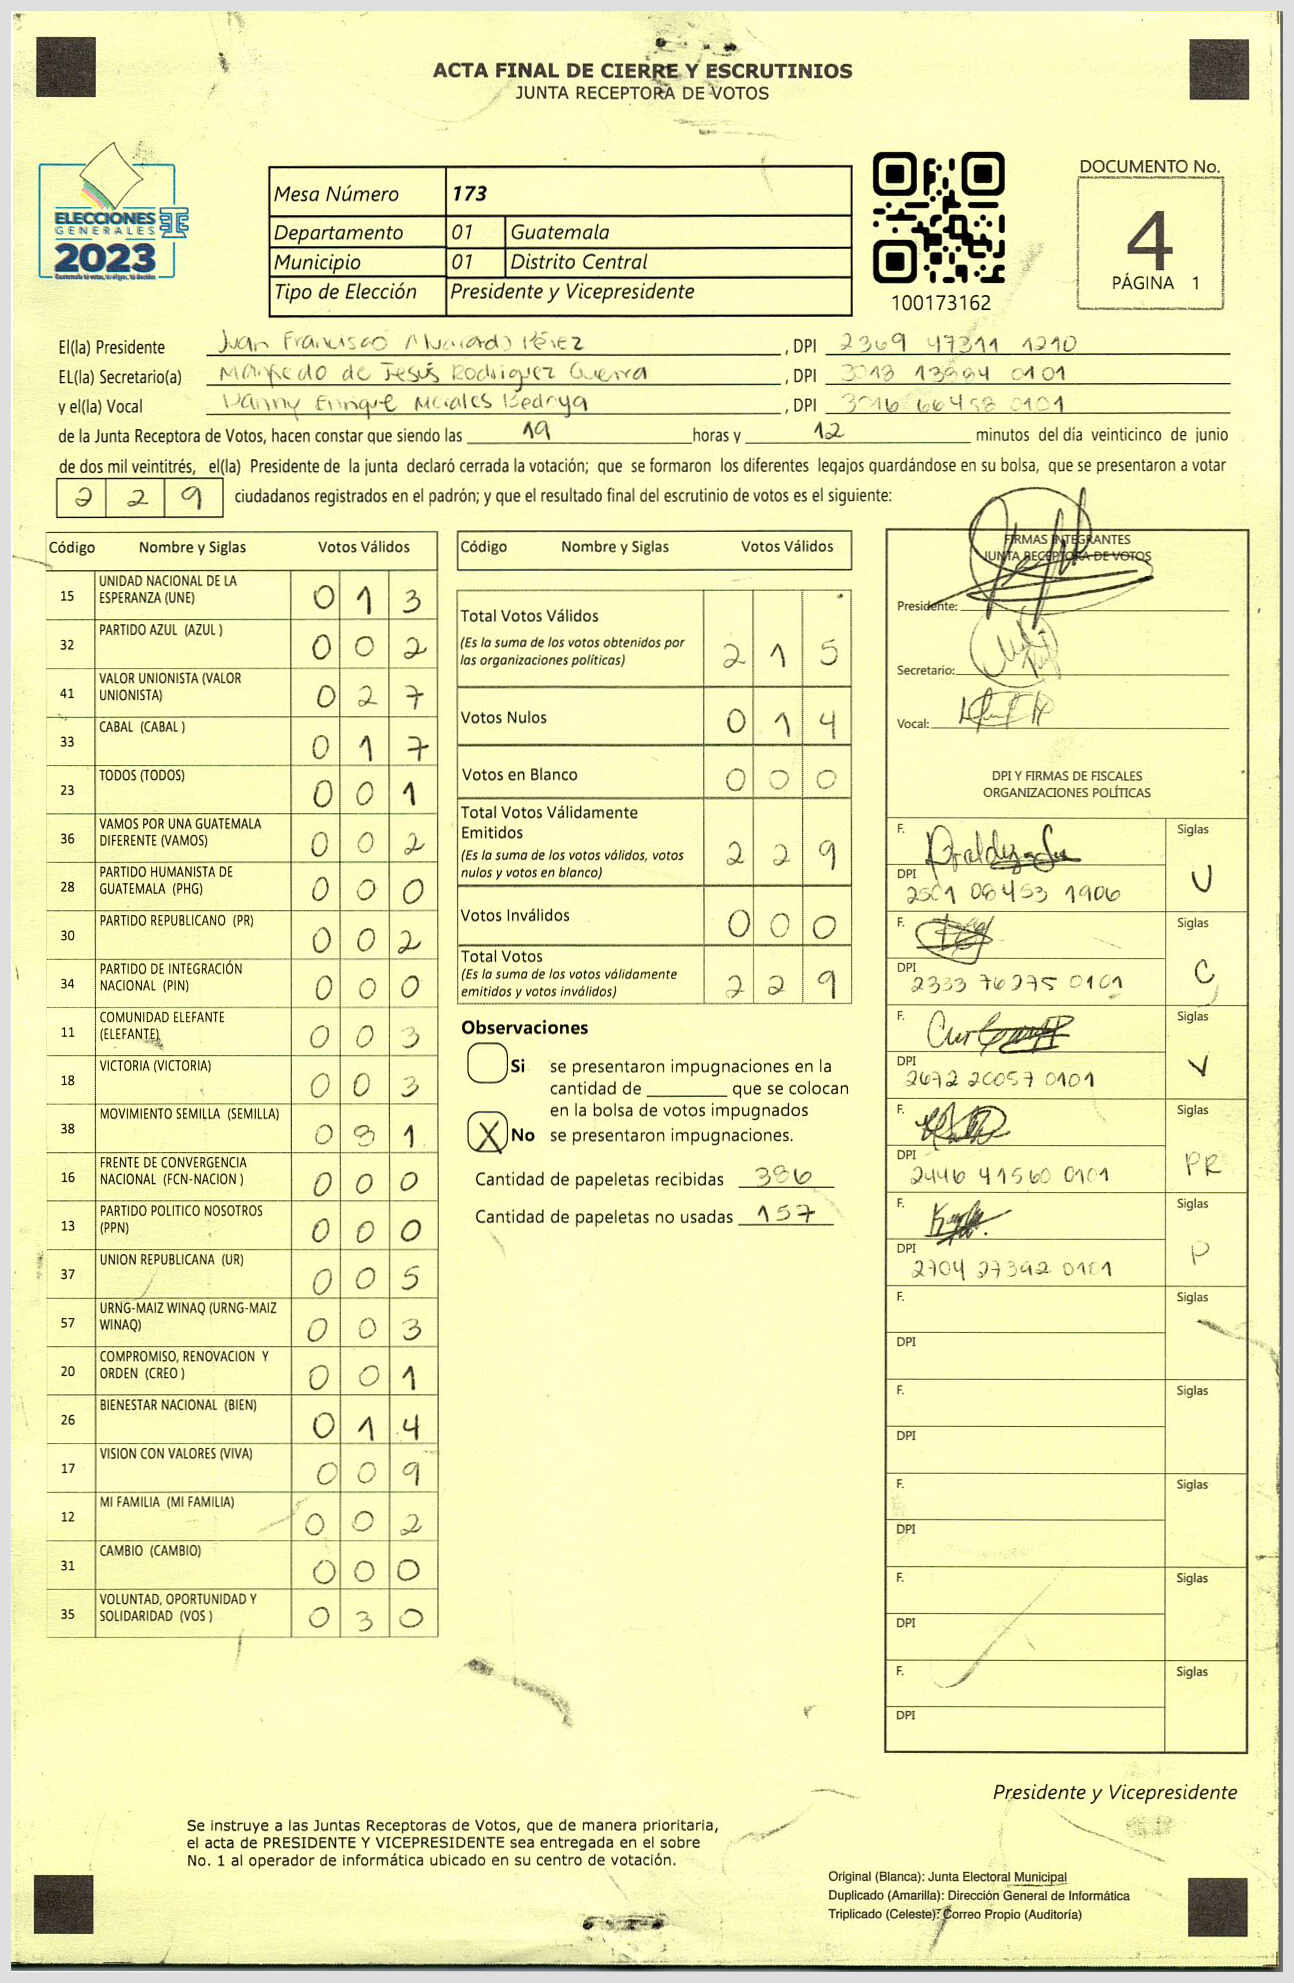 ACTA FINAL DE CIERRE Y ESCRUTINIOS
JUNTA RECEPTORA DE VOTOS
ELECCIONES
GENERALES
2023
Mesa Número 173
Departamento 01 Guatemala
Municipio 01 Distrito Central
Tipo de Elección Presidente y Vicepresidente
100173162
DOCUMENTO No.
4
PÁGINA 1
El(la) Presidente Juan Francisco Alvarado Pérez , DPI 2369 47311 1210
EL(la) Secretario(a) Manfredo de Jesús Rodriguez Guerra , DPI 3018 13994 0101
y el(la) Vocal Danny Enrique Morales Bedoya , DPI 3016 66458 0101
de la Junta Receptora de Votos, hacen constar que siendo las 19 horas y 12 minutos del día veinticinco de junio
de dos mil veintitrés, el(la) Presidente de la junta declaró cerrada la votación; que se formaron los diferentes legajos guardándose en su bolsa, que se presentaron a votar
2 2 9 ciudadanos registrados en el padrón; y que el resultado final del escrutinio de votos es el siguiente:
Código Nombre y Siglas Votos Válidos
15 UNIDAD NACIONAL DE LA
ESPERANZA (UNE) 0 1 3
32 PARTIDO AZUL (AZUL ) 0 0 2
41 VALOR UNIONISTA (VALOR
UNIONISTA) 0 2 7
33 CABAL (CABAL ) 0 1 7
23 TODOS (TODOS) 0 0 1
36 VAMOS POR UNA GUATEMALA
DIFERENTE (VAMOS) 0 0 2
28 PARTIDO HUMANISTA DE
GUATEMALA (PHG) 0 0 0
30 PARTIDO REPUBLICANO (PR) 0 0 2
34 PARTIDO DE INTEGRACIÓN
NACIONAL (PIN) 0 0 0
11 COMUNIDAD ELEFANTE
(ELEFANTE) 0 0 3
18 VICTORIA (VICTORIA) 0 0 3
38 MOVIMIENTO SEMILLA (SEMILLA) 0 81
16 FRENTE DE CONVERGENCIA
NACIONAL (FCN-NACION ) 0 0 0
13 PARTIDO POLITICO NOSOTROS
(PPN) 0 0 0
37 UNION REPUBLICANA (UR) 0 0 5
57 URNG-MAIZ WINAQ (URNG-MAIZ
WINAQ) 0 0 3
20 COMPROMISO, RENOVACION Y
ORDEN (CREO ) 0 0 1
26 BIENESTAR NACIONAL (BIEN) 0 1 4
17 VISION CON VALORES (VIVA) 0 0 9
12 MI FAMILIA (MI FAMILIA) 0 0 2
31 CAMBIO (CAMBIO) 0 0 0
35 VOLUNTAD, OPORTUNIDAD Y
SOLIDARIDAD (VOS ) 0 3 0
Código Nombre y Siglas Votos Válidos
Total Votos Válidos 2 1 5
(Es la suma de los votos obtenidos por
las organizaciones políticas)
Votos Nulos 0 1 4
Votos en Blanco 0 0 0
Total Votos Válidamente
Emitidos 2 2 9
(Es la suma de los votos válidos, votos
nulos y votos en blanco)
Votos Inválidos 0 0 0
Total Votos 2 2 9
(Es la suma de los votos válidamente
emitidos y votos inválidos)
Observaciones
Si se presentaron impugnaciones en la
cantidad de ________ que se colocan
en la bolsa de votos impugnados
X No se presentaron impugnaciones.
Cantidad de papeletas recibidas 386
Cantidad de papeletas no usadas 157
FIRMAS INTEGRANTES
JUNTA RECEPTORA DE VOTOS
Presidente:
Secretario:
Vocal:
DPI Y FIRMAS DE FISCALES
ORGANIZACIONES POLÍTICAS
F. Siglas
DPI U
2501 08453 1906
F. Siglas
DPI C
2333 76275 0101
F. Siglas
DPI V
2672 20057 0101
F. Siglas
DPI PR
2446 41560 0101
F. Siglas
DPI P
2704 27392 0101
F. Siglas
DPI
F. Siglas
DPI
F. Siglas
DPI
F. Siglas
DPI
F. Siglas
DPI
Presidente y Vicepresidente
Se instruye a las Juntas Receptoras de Votos, que de manera prioritaria,
el acta de PRESIDENTE Y VICEPRESIDENTE sea entregada en el sobre
No. 1 al operador de informática ubicado en su centro de votación.
Original (Blanca): Junta Electoral Municipal
Duplicado (Amarilla): Dirección General de Informática
Triplicado (Celeste): Correo Propio (Auditoría)